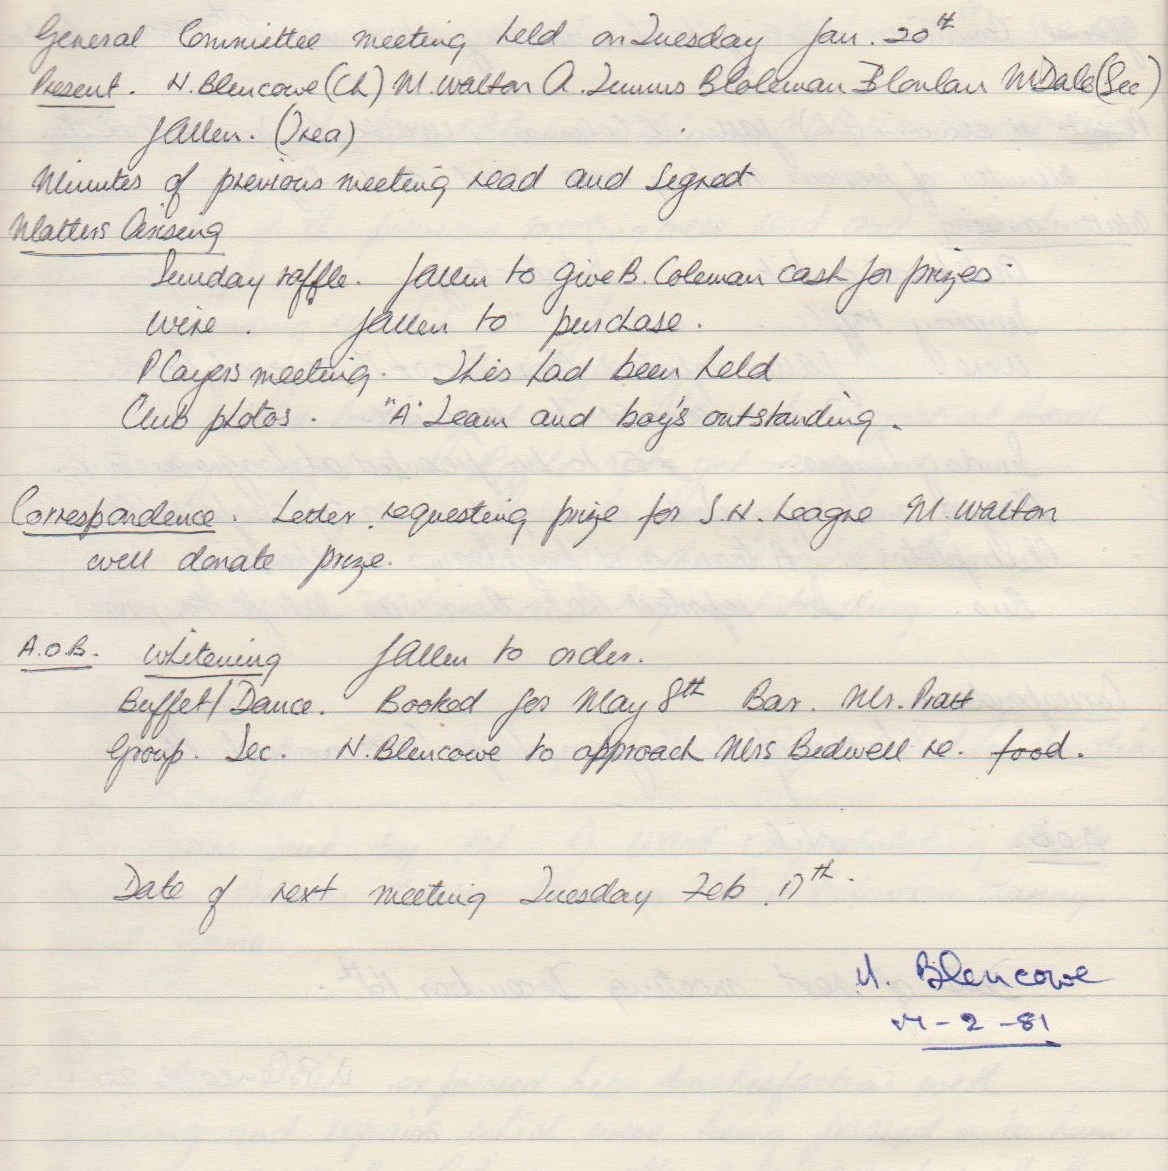 General Committee meeting held on Tuesday Jan. 20th
Present. N. Blencowe (Ch) M. Walton A. Timms B Coleman B Conlan M Dale (Sec)
J Allen. (Trea)
Minutes of previous meeting read and signed
Matters Arising
Sunday raffle. J Allen to give B. Coleman cash for prizes.
Wire. J Allen to purchase.
Players meeting. This had been held
Club photos. "A" Team and boy's outstanding.
Correspondence. Letter requesting prize for S.N. League M. Walton
will donate prize.
A.O.B. Whitening J Allen to order.
Buffet/Dance. Booked for May 8th Bar. Mr. Pratt
Group. Sec. N. Blencowe to approach Mrs Bedwell re. food.
Date of next meeting Tuesday Feb. 17th.
N. Blencowe
-2-81